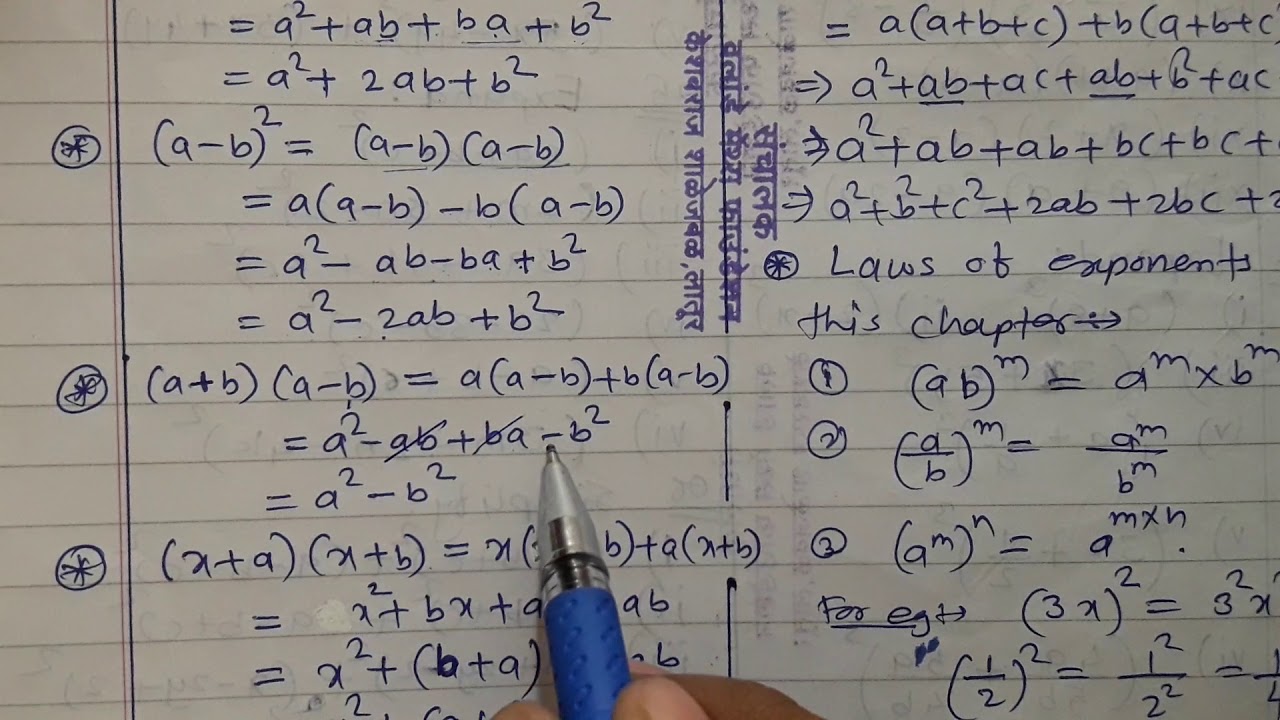 = a² + ab + ba + b²
= a² + 2ab + b²
(a-b)² = (a-b)(a-b)
= a(a-b) - b(a-b)
= a² - ab - ba + b²
= a² - 2ab + b²
(a+b)(a-b) = a(a-b)+b(a-b)
= a² - ab + ba - b²
= a² - b²
(x+a)(x+b) = x( b)+a(x+b)
= x² + bx + a ab
= x² + (b+a) b
केशवराज शाळेजवळ, लातूर
संचालक
= a(a+b+c) + b(a+b+c
⇒ a² + ab + ac + ab + b² + ac
⇒ a² + ab + ab + bc + bc +
⇒ a² + b² + c² + 2ab + 2bc + 2
Laws of exponents
this chapter →
① (ab)^m = a^m × b^m
② (a/b)^m = a^m/b^m
③ (a^m)^n = a^(m×n).
For eg → (3x)² = 3²x²
(1/2)² = 1²/2² = 1/4